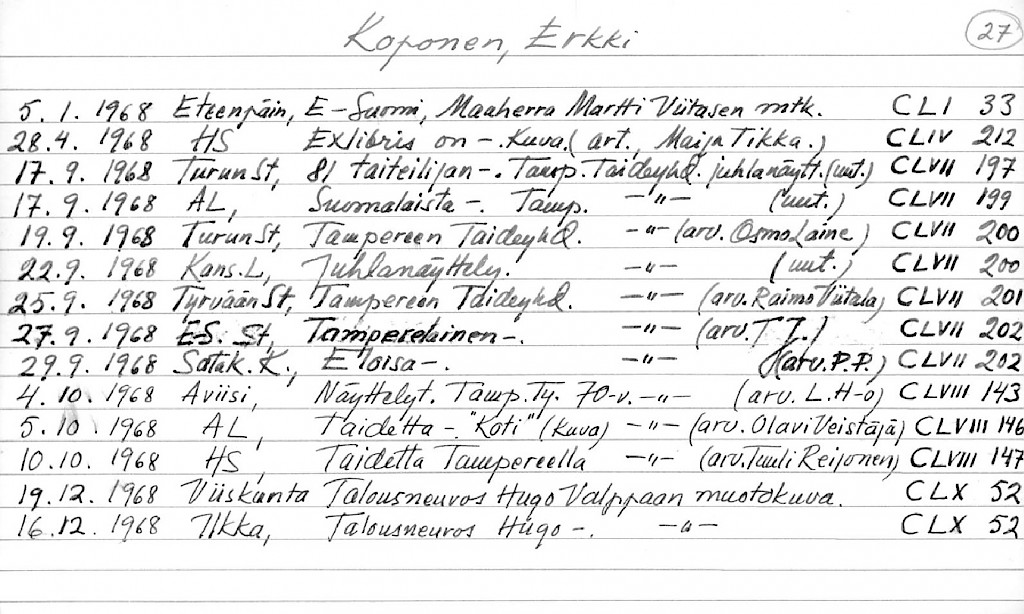 Koponen, Erkki
27
5.1.1968 Eteenpäin, E-Suomi, Maaherra Martti Viitasen mtk. CLI 33
28.4.1968 HS Exlibris on -. Kuva.( art., Maija Tikka.) CLIV 212
17.9.1968 Turun St, 81 taiteilijan -. Tamp. Taideyhd. juhlanäytt.(uut.) CLVII 197
17.9.1968 AL, Suomalaista -. Tamp. -"- (uut.) CLVII 199
19.9.1968 Turun St, Tampereen Taideyhd. -"- (arv. Osmo Laine) CLVII 200
22.9.1968 Kans.L, Juhlanäyttely. -"- (uut.) CLVII 200
25.9.1968 Tyrvään St, Tampereen Taideyhd. -"- (arv. Raimo Viitala) CLVII 201
27.9.1968 E-S. St, Tamperelainen -. -"- (arv. T.T.) CLVII 202
29.9.1968 Satak.K., Eloisa -. -"- (arv. P.P.) CLVII 202
4.10.1968 Aviisi, Näyttelyt. Tamp.Ty. 70-v. -"- (arv. L.H-o) CLVIII 143
5.10.1968 AL, Taidetta -. "Koti" (kuva) -"- (arv. Olavi Veistäjä) CLVIII 146
10.10.1968 HS, Taidetta Tampereella -"- (arv. Tuuli Reijonen) CLVIII 147
19.12.1968 Viiskunta Talousneuvos Hugo Valppaan muotokuva. CLX 52
16.12.1968 Ilkka, Talousneuvos Hugo -. -"- CLX 52